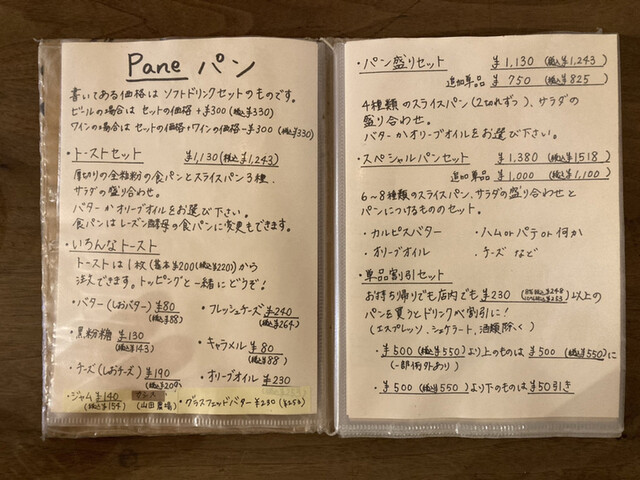 Pane パン
書いてある価格は ソフトドリンクセットのものです。
ビールの場合は セットの価格 +¥300(税込¥330)
ワインの場合は セットの価格+ワインの価格-¥300(税込¥330)
・トーストセット ¥1,130(税込¥1,243)
厚切りの全粒粉の食パンとスライスパン3種、
サラダの盛り合わせ。
バターかオリーブオイルをお選び下さい。
食パンはレーズン酵母の食パンに変更もできます。
・いろんなトースト
トーストは1枚(基本¥200(税込¥220))から
注文できます。トッピングと一緒にどうぞ!
・バター(しおバター) ¥80
(税込¥88)
・フレッシュチーズ ¥240
(税込¥264)
・黒粉糖 ¥130
(税込¥143)
・キャラメル ¥80
(税込¥88)
・チーズ(しおチーズ) ¥190
(税込¥209)
・オリーブオイル ¥230
・ジャム ¥140
(税込¥154)
(山田農場)
・グラスフェッドバター ¥230
・パン盛りセット ¥1,130(税込¥1,243)
追加単品 ¥750(税込¥825)
4種類のスライスパン(2切れずつ)、サラダの
盛り合わせ。
バターかオリーブオイルをお選び下さい。
・スペシャルパンセット ¥1,380(税込¥1518)
追加単品 ¥1,000(税込¥1,100)
6~8種類のスライスパン、サラダの盛り合わせと
パンにつけるもののセット。
・カルピスバター
・ハムorパテor何か
・オリーブオイル
・チーズ など
・単品割引セット
お持ち帰りでも店内でも¥230 以上の
パンを買うとドリンクが割引に!
(エスプレッソ、ショケラート、酒類除く)
・¥500(税込¥550)より上のものは ¥500(税込¥550)に
(一部例外あり)
・¥500(税込¥550)より下のものは ¥50引き